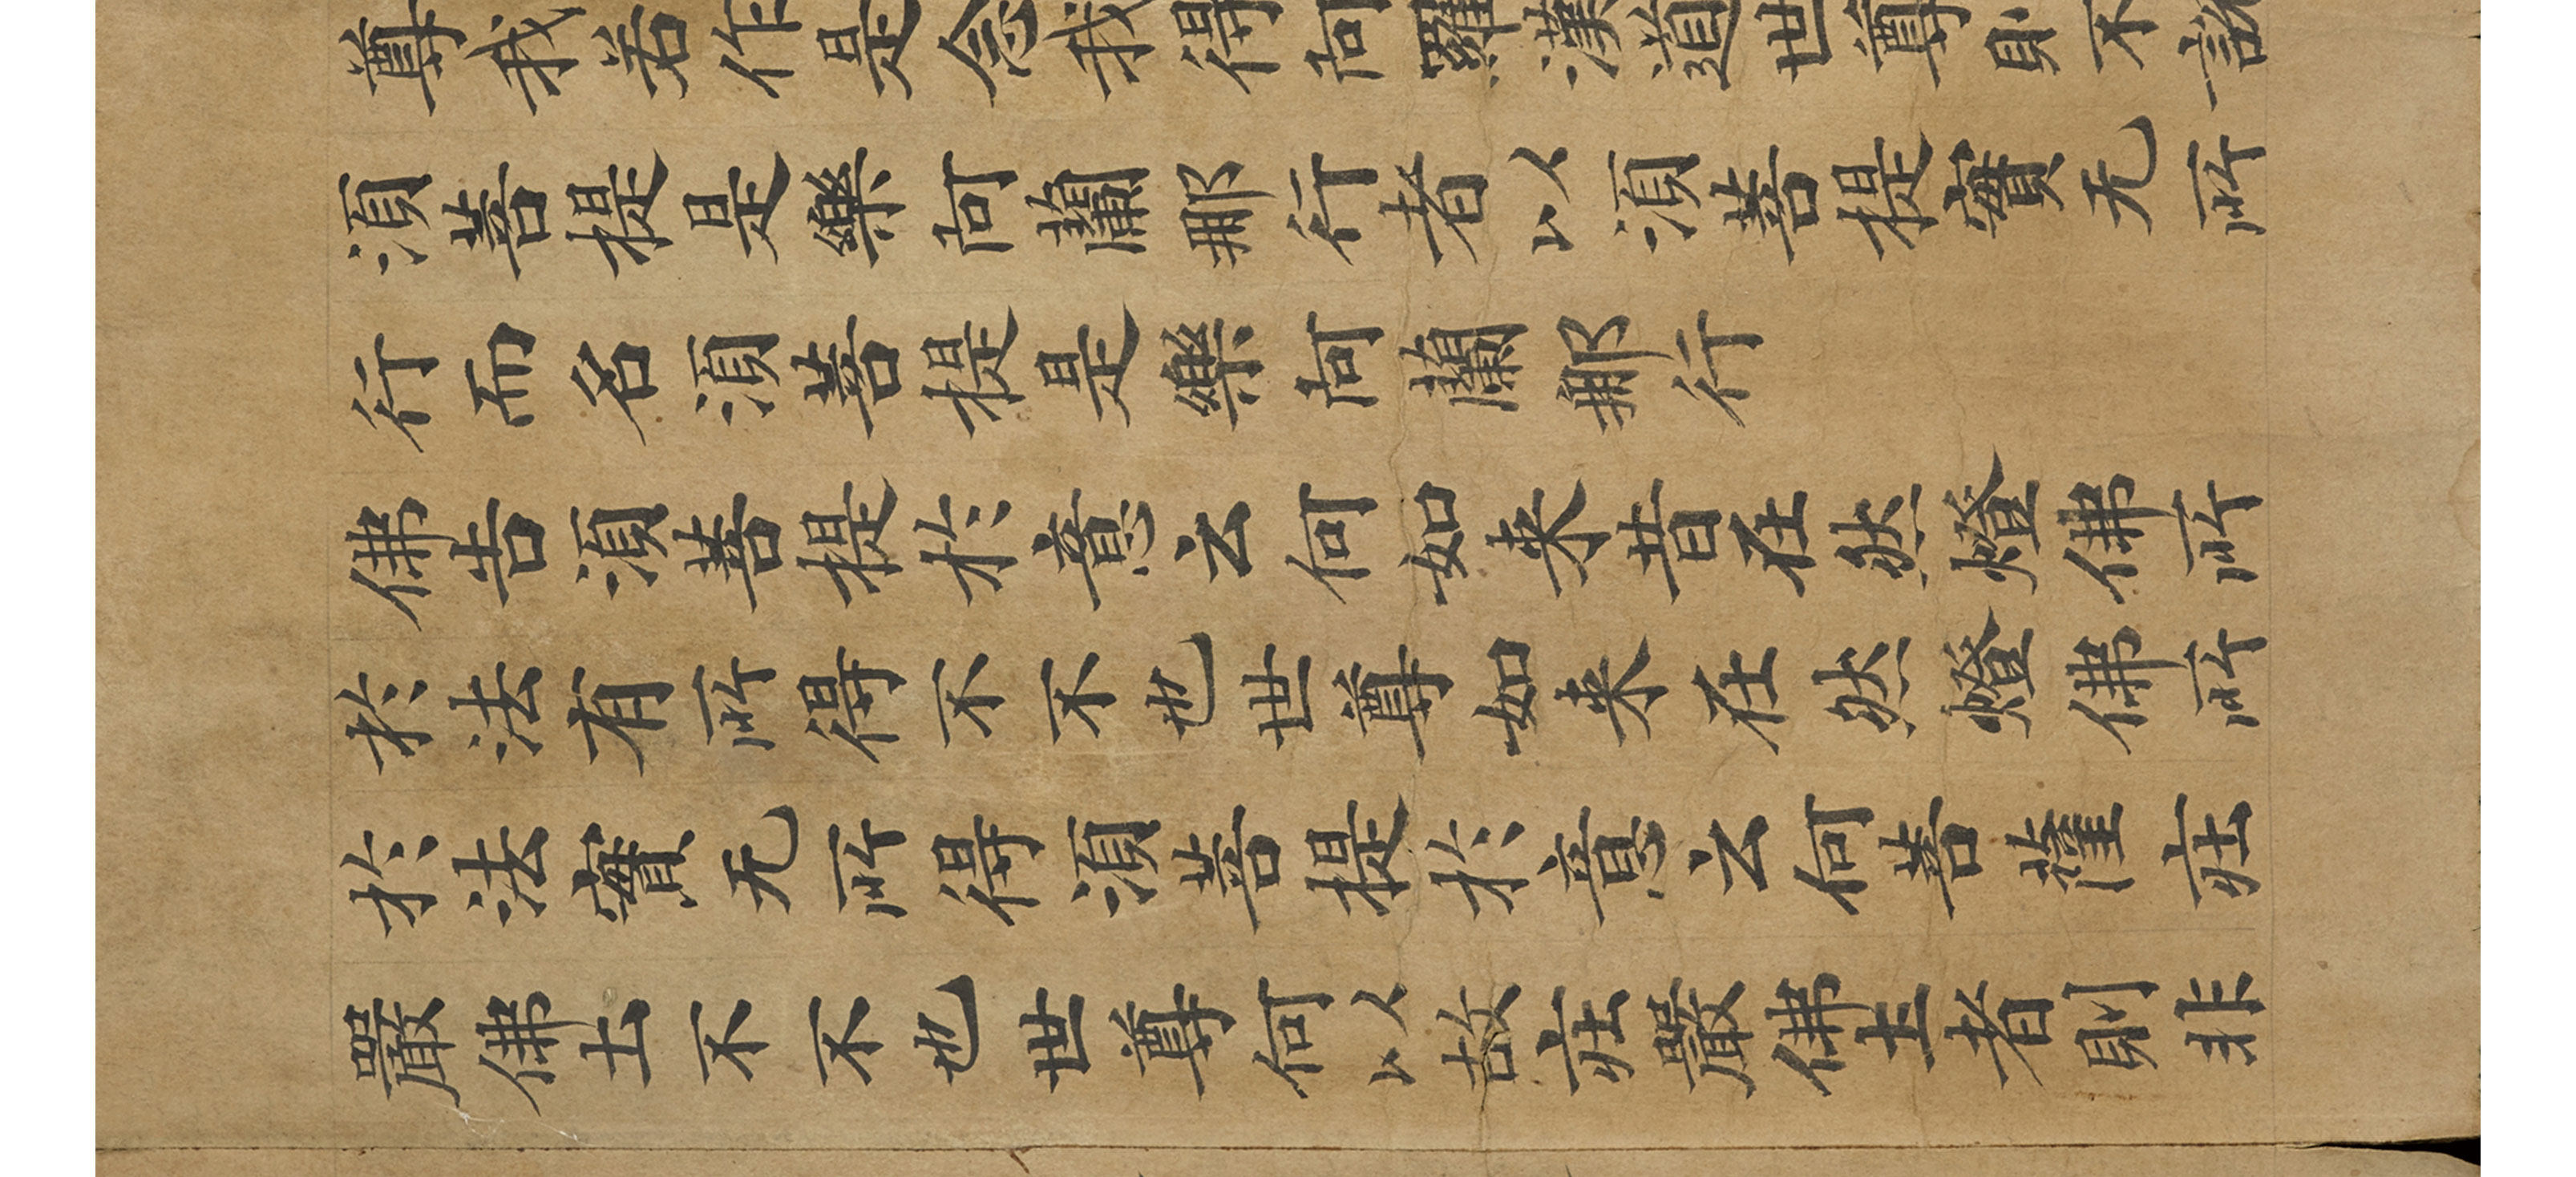 尊我若作是念我得阿羅漢道世尊則不說
須菩提是樂阿蘭那行者以須菩提實无所
行而名須菩提是樂阿蘭那行
佛告須菩提於意云何如来昔在然燈佛所
於法有所得不不也世尊如来在然燈佛所
於法實无所得須菩提於意云何菩薩莊
嚴佛土不不也世尊何以故莊嚴佛土者則非